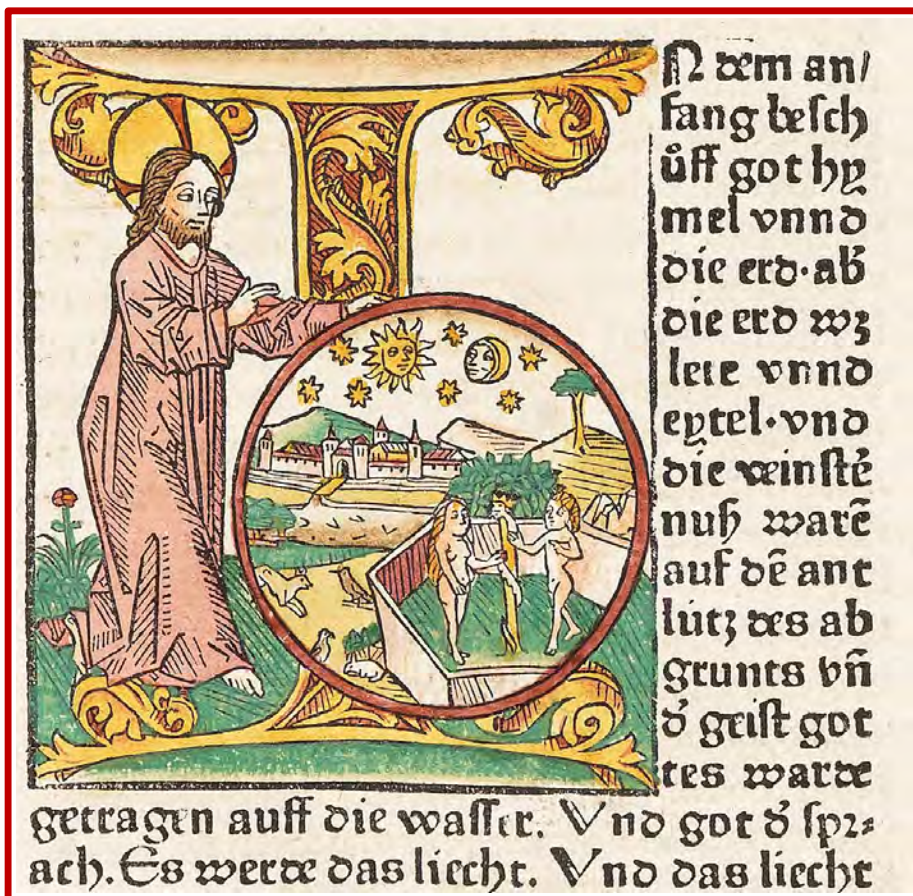 I
N dem an/
fang besch
ůff got hy
mel vnnd
die erd·ab̓
die erd wz
lere vnnd
eytel·vnd
die veinstē
nuß warē
auf dē ant
lütz des ab
grunts vn̄
d̓ geist got
tes warde
getragen auff die wasser. Vnd got d̓ spr⸗
ach. Es werde das liecht. Vnd das liecht